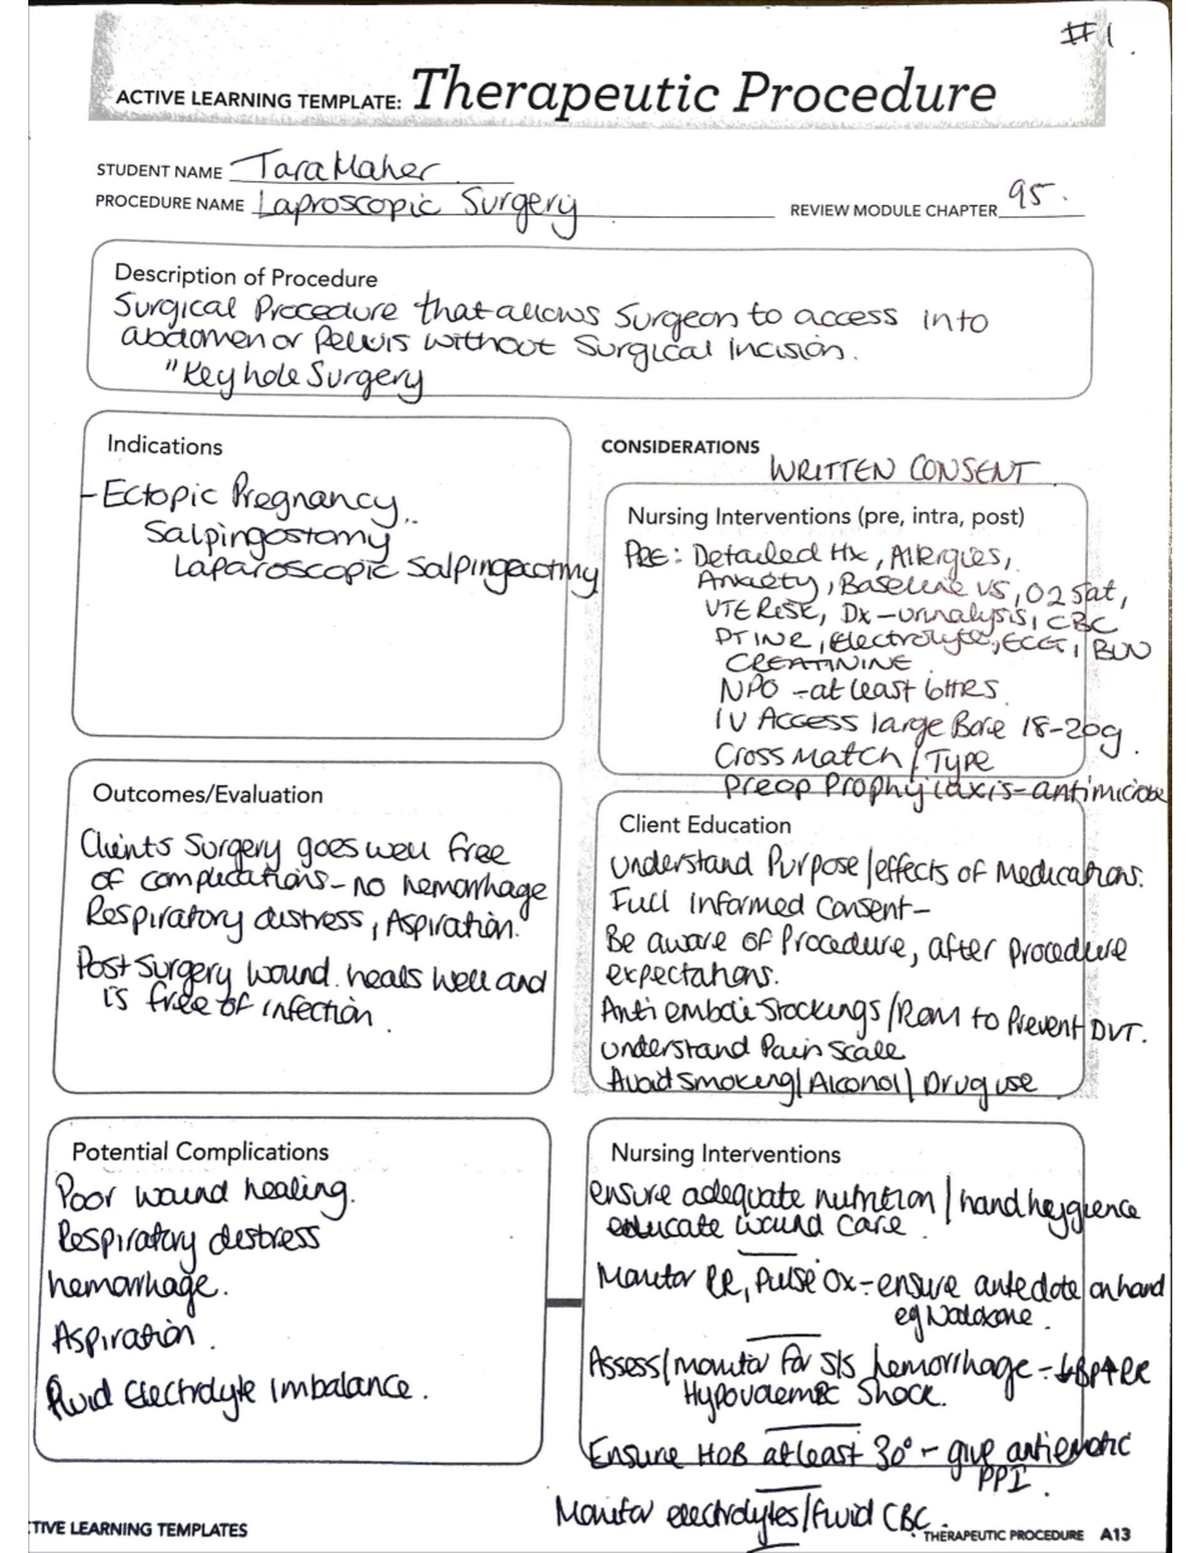 #1.
ACTIVE LEARNING TEMPLATE: Therapeutic Procedure
STUDENT NAME Tara Maher
PROCEDURE NAME Laproscopic Surgery
REVIEW MODULE CHAPTER 95.
Description of Procedure
Surgical Procedure that allows Surgeon to access into
abdomen or Pelvis without Surgical Incision.
"Keyhole Surgery
Indications
- Ectopic Pregnancy..
Salpingostomy
Laparoscopic Salpingecotmy
CONSIDERATIONS
WRITTEN CONSENT
Nursing Interventions (pre, intra, post)
PRE: Detailed Hx, Allergies,
Anxiety, Baseline VS, O2 Sat,
VTE RISK, Dx - urinalysis, CBC
PT INR, Electrolytes, ECG, BUN
CREATININE
NPO - at least 6HRS
IV Access large Bore 18-20g.
Cross Match / Type
Preop Prophylaxis - antimicrobe
Outcomes/Evaluation
Clients Surgery goes well free
of complications - no hemorrhage
Respiratory distress, Aspiration.
Post Surgery wound heals well and
is free of infection.
Client Education
Understand Purpose/effects of Medications.
Full Informed Consent -
Be aware of Procedure, after procedure
expectations.
Anti embolic Stockings/ROM to Prevent DVT.
Understand Pain Scale
Avoid Smoking/Alcohol/Drug use
Potential Complications
Poor wound healing.
Respiratory distress
hemorrhage.
Aspiration.
Fluid Electrolyte Imbalance.
Nursing Interventions
ensure adequate nutrition / hand heygience
educate wound care
Monitor RR, Pulse Ox - ensure antedote on hand
eg Naloxone.
Assess/monitor for S/S hemorrhage - ↓BP↑RR
Hypovolemic Shock.
Ensure HOB at least 30° - give antiemetic
PPI.
Monitor electrolytes/fluid CBC.
TIVE LEARNING TEMPLATES
THERAPEUTIC PROCEDURE A13